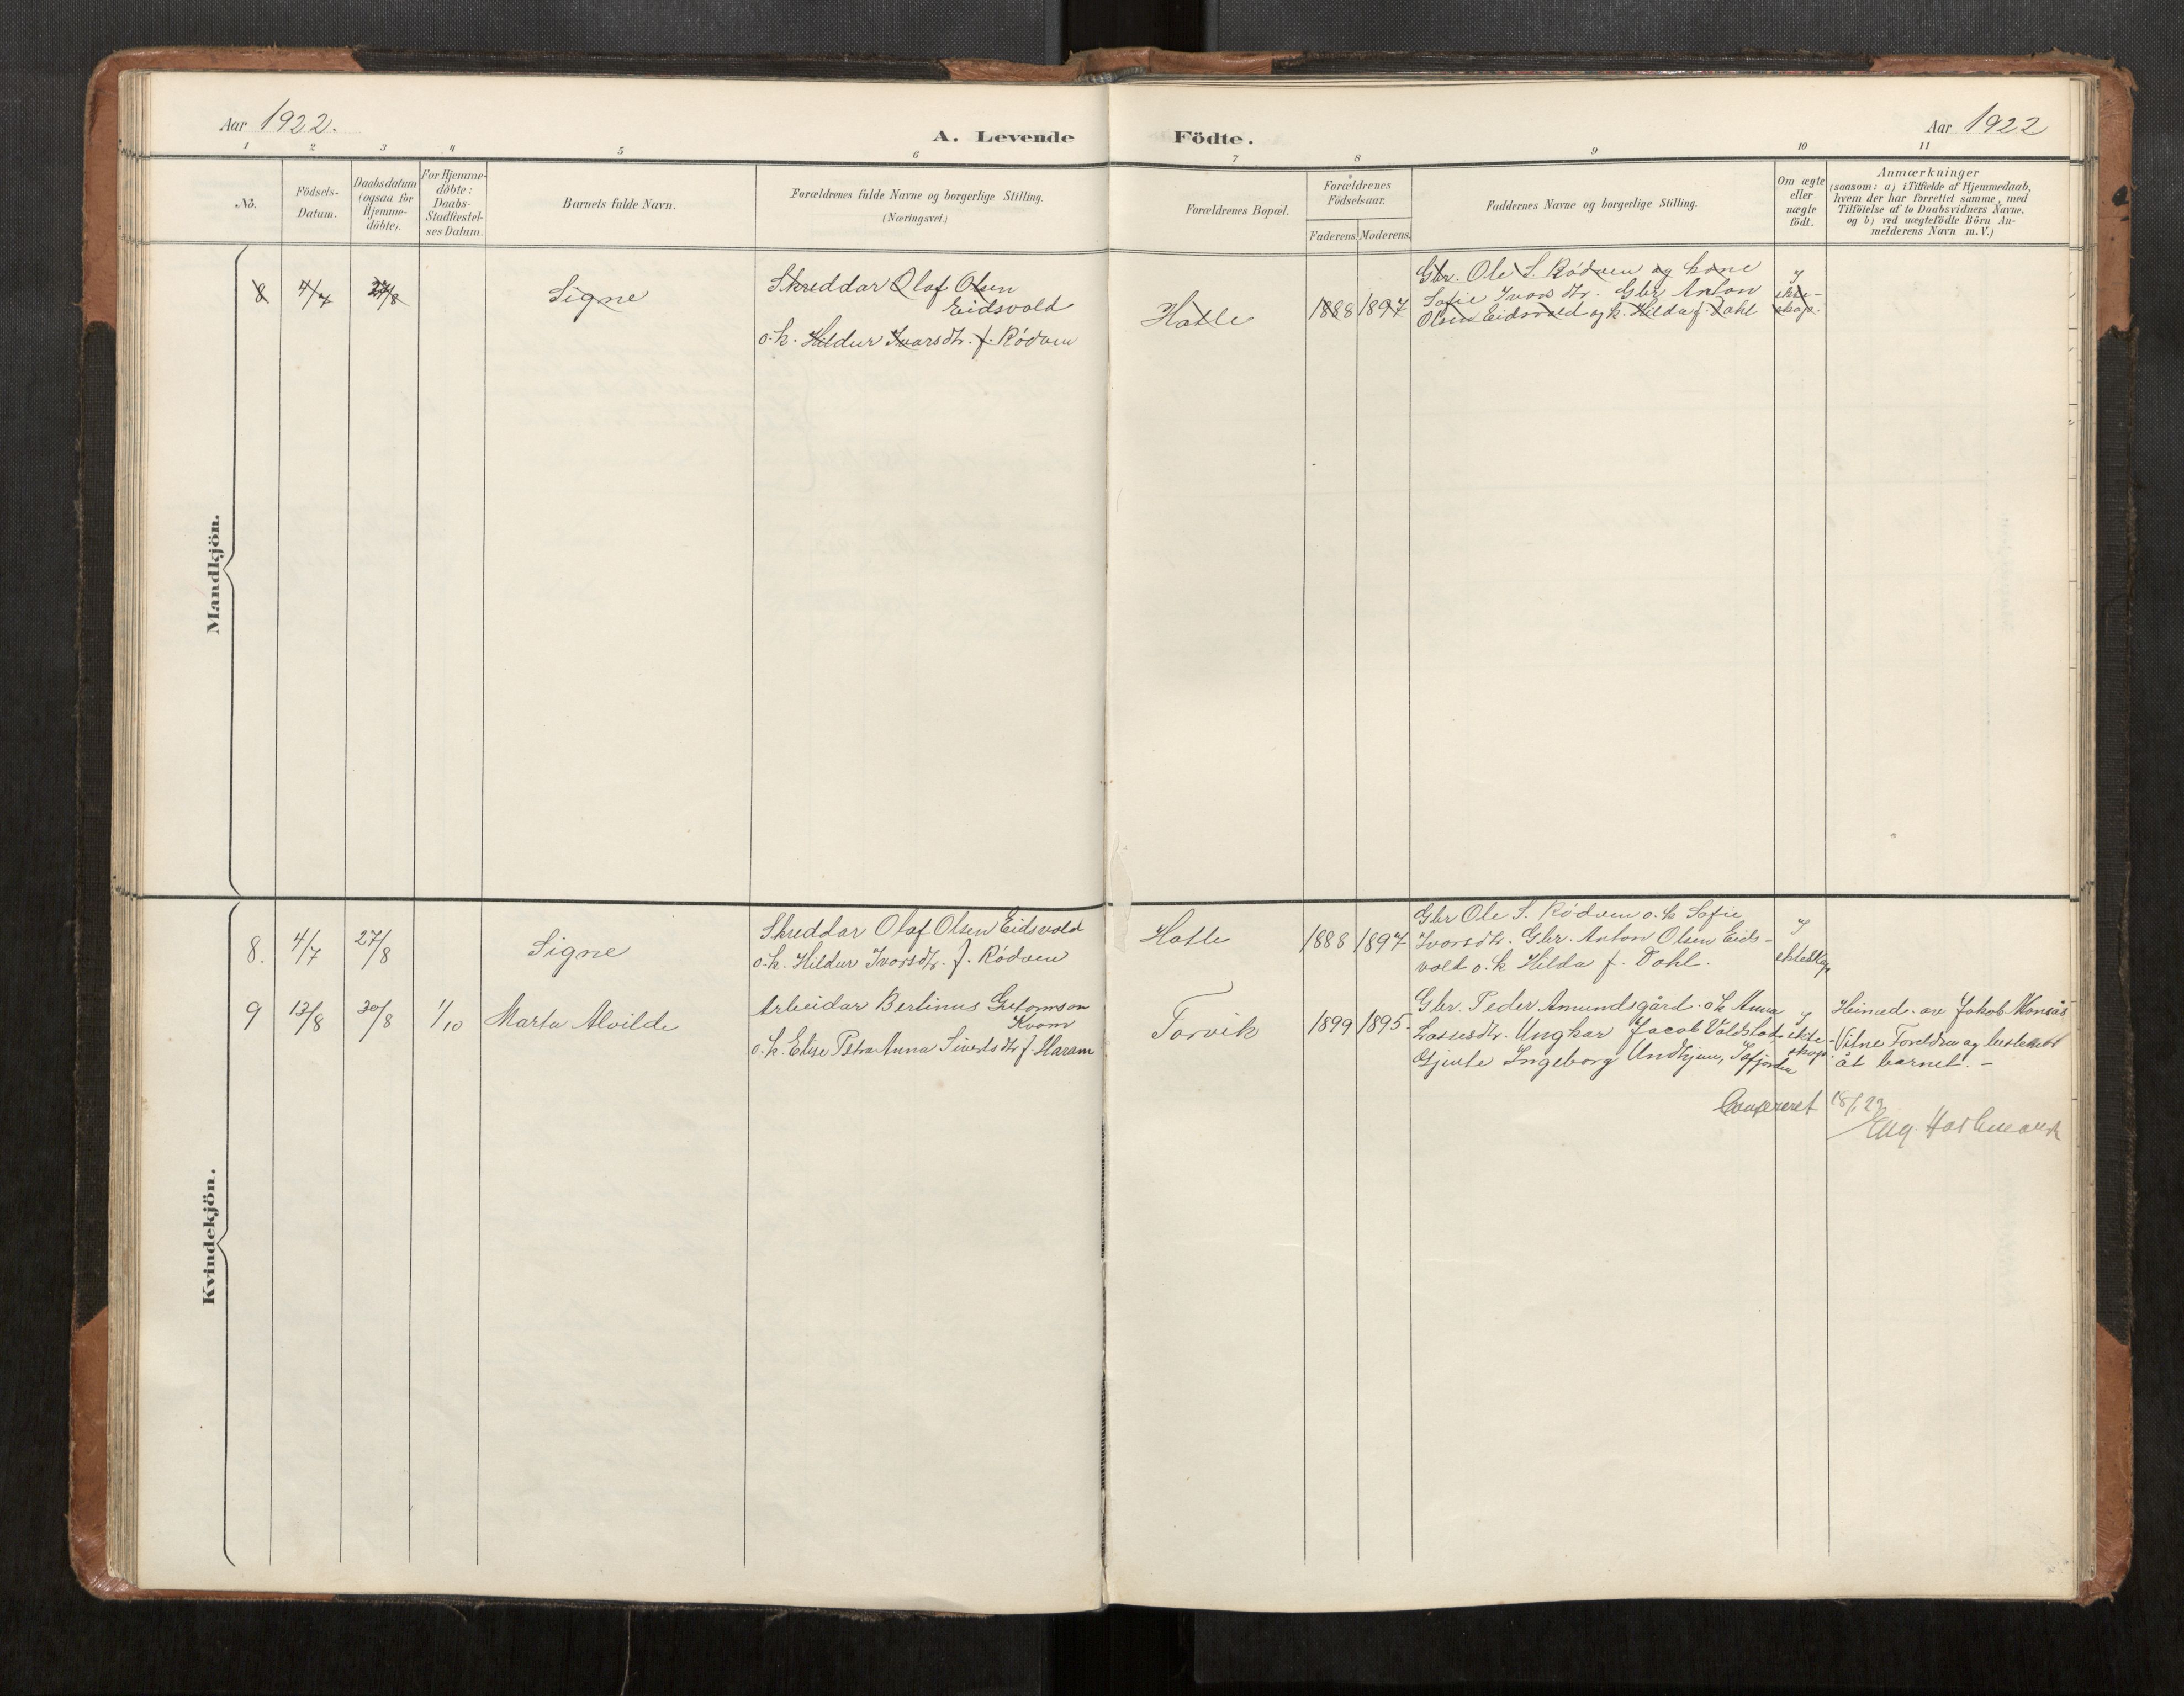 Aar 1922.
A. Levende Födte.
Aar 1922
1 2 3 4 5 6 7 8 9 10 11
No.
Födsels-
Datum.
Daabsdatum
(ogsaa for
Hjemme-
döbte).
For Hjemme-
döbte:
Daabs-
Stadfæstel-
ses Datum.
Barnets fulde Navn.
Forældrenes fulde Navne og borgerlige Stilling.
(Næringsvei.)
Forældrenes Bopæl.
Forældrenes
Födselsaar.
Faderens. Moderens.
Faddernes Navne og borgerlige Stilling.
Om ægte
eller
uægte
födt.
Anmærkninger
(saasom: a) i Tilfælde af Hjemmedaab,
hvem der har forrettet samme, med
Tilföielse af to Daabsvidners Navne,
og b) ved uægtefödte Börn An-
melderens Navn m. V.)
Mandkjön.
8
4/7
27/8
Signe
Skreddar Olaf Olsen
Eidsvold
o. k. Hildur Ivarsdtr. f. Rödven
Hatle
1888 1897
Gbr. Ole S. Rödven og kone
Sofie Ivarsdtr. Gbr Anton
Olsen Eidsvold og k. Hilda f. Dahl
I
ekte-
skap.
Kvindekjön.
8.
4/7
27/8
Signe
Skreddar Olaf Olsen Eidsvold
o. k. Hildur Ivarsdtr. f. Rödven
Hatle
1888 1897
Gbr Ole S. Rödven o. k Sofie
Ivarsdtr. Gbr. Anton Olsen Eids-
vold o. k Hilda f. Dahl.
I
ekteskap
9
13/8
30/8
1/10
Marta Alvilde
Arbeidar Bertinus
Kvam
o. k. Elise Petra Anna Sivertsdtr f. Haram
Torvik
1899 1895.
Gbr. Peder Amundsgård o k Anna
Lassesdtr. Ungkar Jacob Voldstad
Gjente Ingeborg Undhjem, Isfjorden
I
ekte-
skap.
Heimed. av Jakob
Vitne Foreldra og
åt barnet. -
Confereret 18/1 23